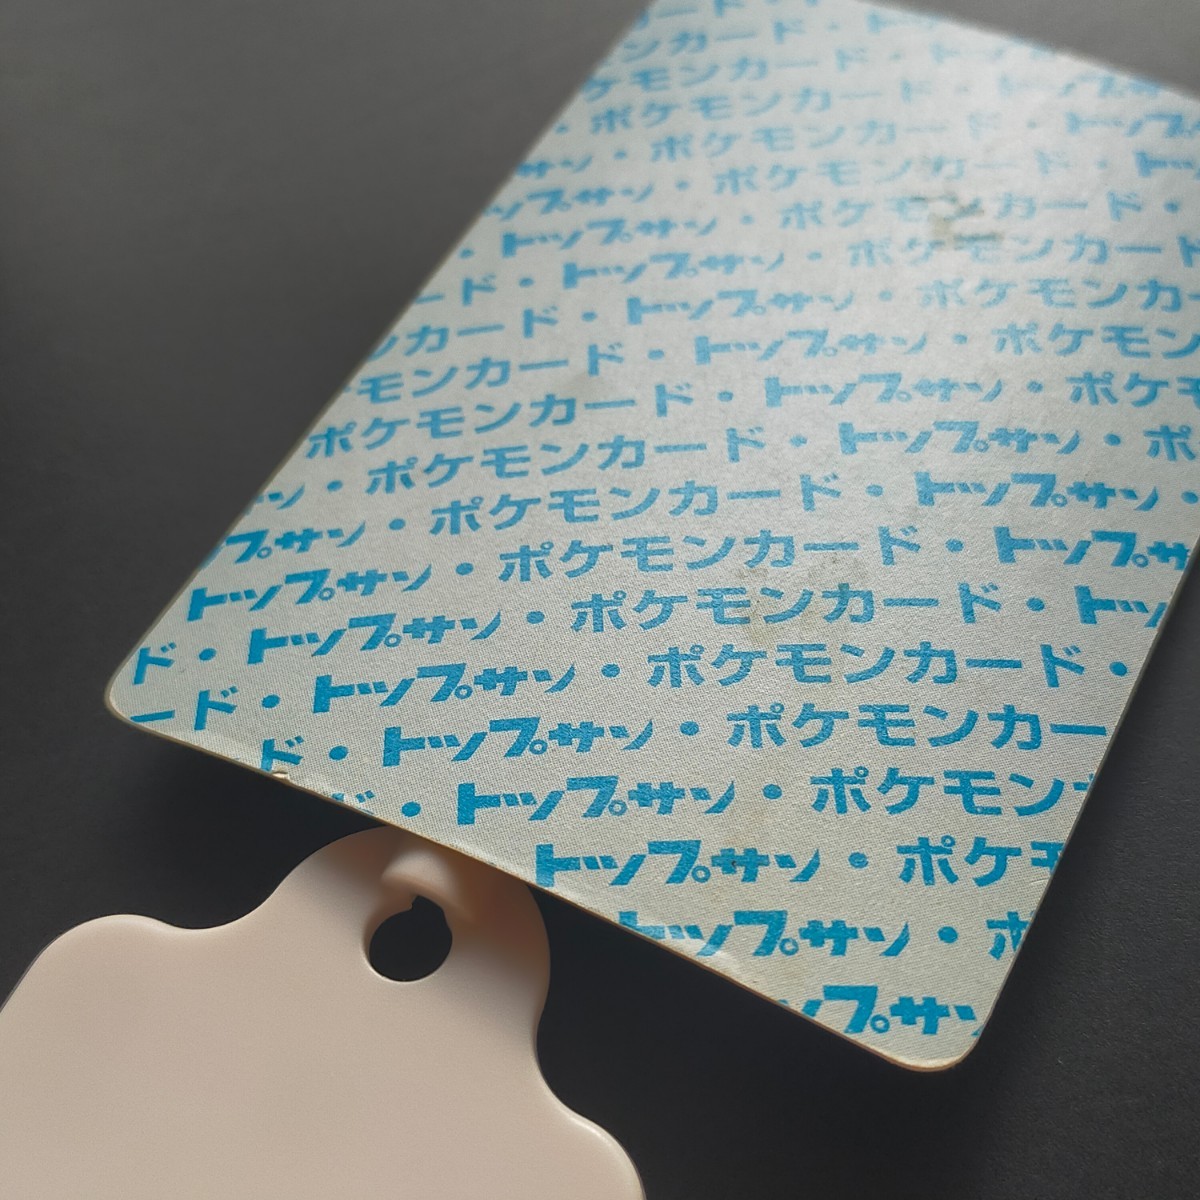 ンカード・
カード・ト
ケモンカード・トップ
・ポケモンカード・トップ
サン・ポケモンカード・ト
ップサン・ポケモンカード・
・トップサン・ポケモンカード
ード・トップサン・ポケモンカ
ンカード・トップサン・ポケモン
モンカード・トップサン・ポケ
ポケモンカード・トップサン・ポ
ン・ポケモンカード・トップサン・
プサン・ポケモンカード・トップサ
トップサン・ポケモンカード・トッ
ド・トップサン・ポケモンカード・
ード・トップサン・ポケモンカー
ド・トップサン・ポケモン
・トップサン・ポケ
トップサン・ポ
トップサン・
プサン